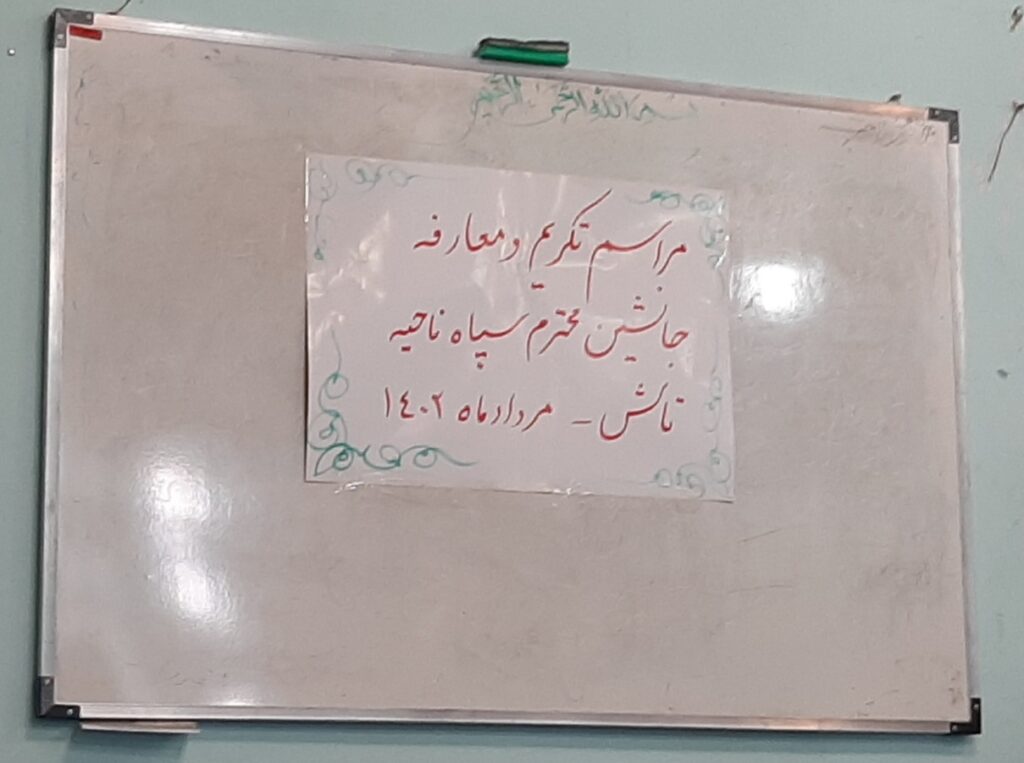 بسم الله الرحمن الرحیم
مراسم تکریم و معارفه
جانشین محترم سپاه ناحیه
تالش - مردادماه ۱٤۰۲